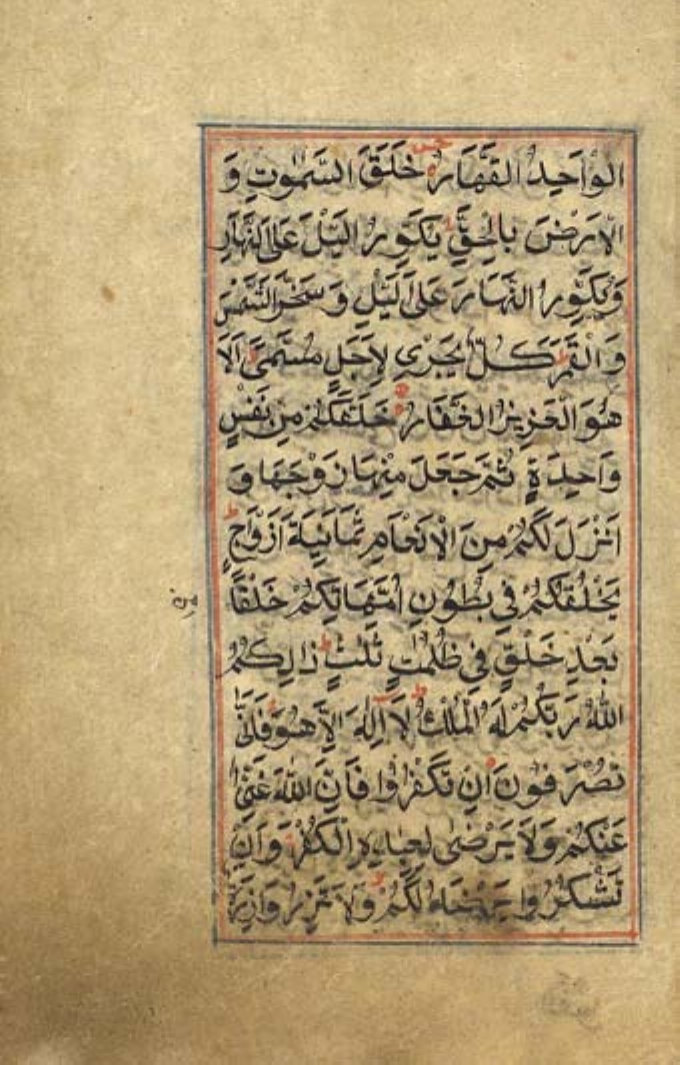 الْوَاحِدُ الْقَهَّارُ خَلَقَ السَّمٰوٰتِ وَ
الْاَرْضَ بِالْحَقِّ يُكَوِّرُ الَّيْلَ عَلَى النَّهَارِ
وَيُكَوِّرُ النَّهَارَ عَلَى الَّيْلِ وَ سَخَّرَ الشَّمْسَ
وَ الْقَمَرَ كُلٌّ يَجْرِي لِاَجَلٍ مُسَمًّى اَلَا
هُوَ الْعَزِيزُ الْغَفَّارُ خَلَقَكُمْ مِنْ نَفْسٍ
وَاحِدَةٍ ثُمَّ جَعَلَ مِنْهَا زَوْجَهَا وَ
اَنْزَلَ لَكُمْ مِنَ الْاَنْعَامِ ثَمَانِيَةَ اَزْوَاجٍ
يَخْلُقُكُمْ فِي بُطُونِ اُمَّهَاتِكُمْ خَلْقًا
بَعْدِ خَلْقٍ فِي ظُلُمٰتٍ ثَلٰثٍ ذَالِكُمُ
اللّٰهُ رَبُّكُمْ لَهُ الْمُلْكُ لَا اِلٰهَ اِلَّا هُوَ فَاَنّٰى
تُصْرَفُونَ اِنْ تَكْفُرُوا فَاِنَّ اللّٰهَ غَنِيٌّ
عَنْكُمْ وَلَا يَرْضٰى لِعِبَادِهِ الْكُفْرَ وَاِنْ
تَشْكُرُوا يَرْضَهُ لَكُمْ وَلَا تَزِرُ وَازِرَةٌ